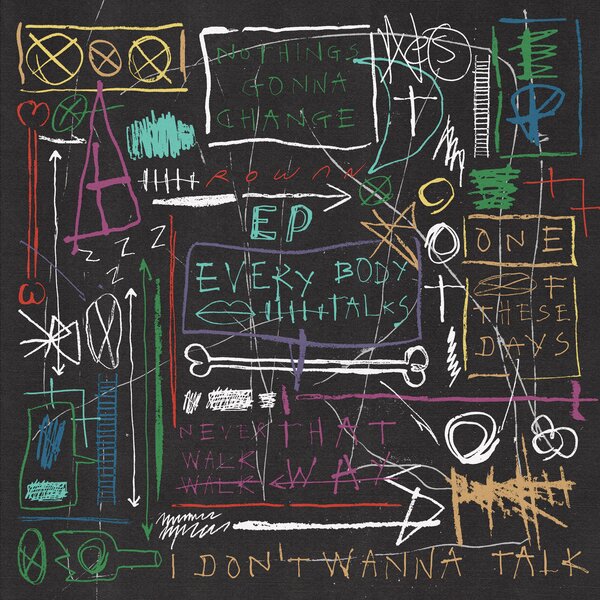 NOTHINGS
GONNA
CHANGE
ROWAN
EP
ZZZZ
EVERY BODY
TALKS
ONE
OF
THESE
DAYS
NEVER THAT
WALK
WALK WAY
I DON'T WANNA TALK